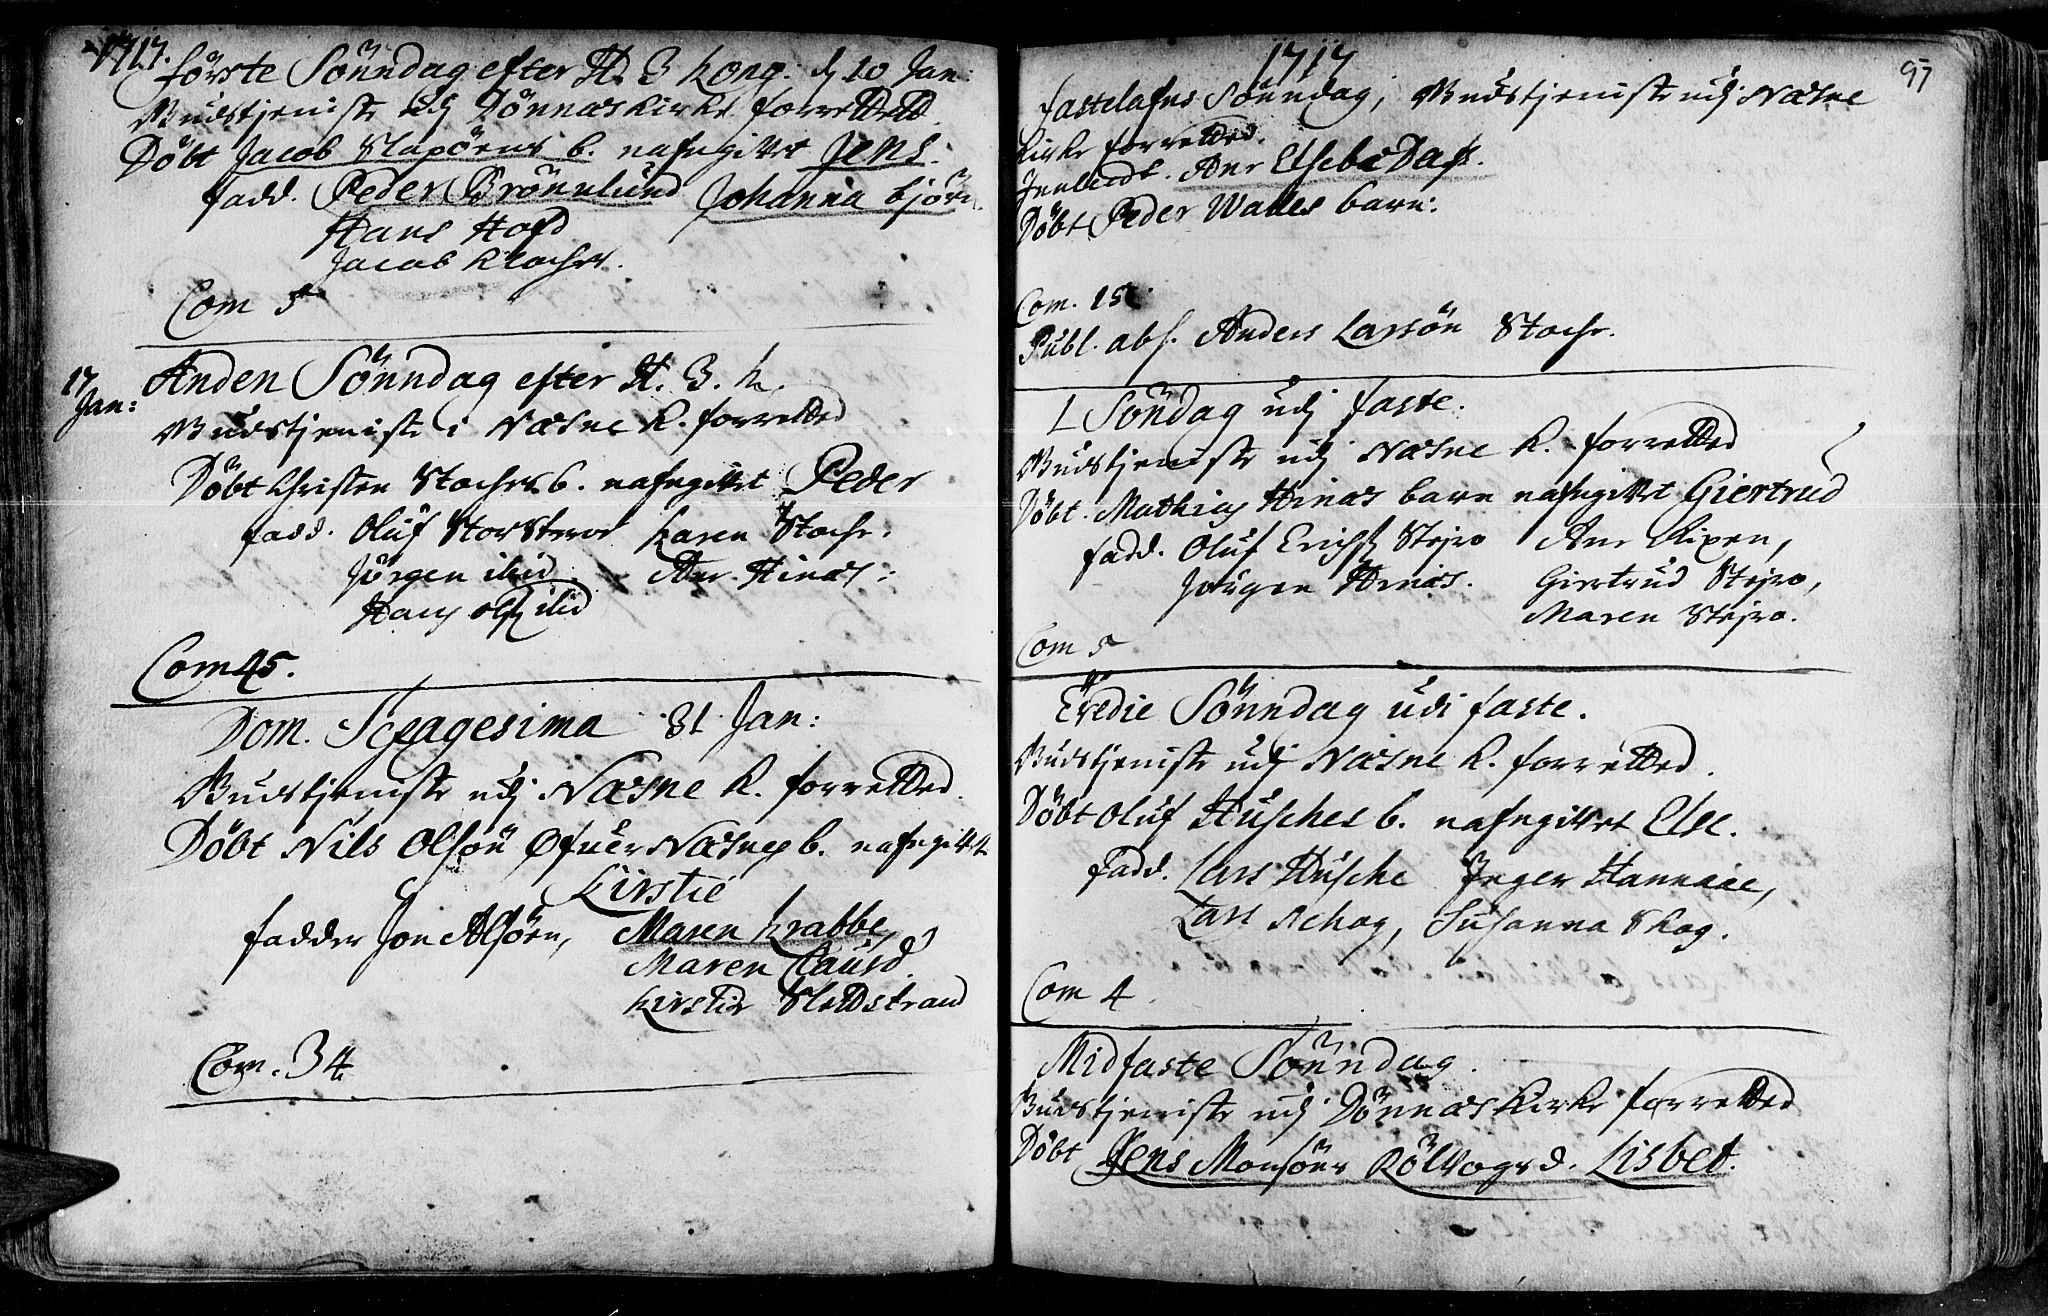 1717.
Förste Sönndag efter H. 3 Kong. d 10 Jan:
Gudstjeniste udj Dönnæs Kirke forretted
Döbt Jacob Slapörns b. nafngifvet Jens.
fadd. Peder Brönnlund Johanna Björn.
Hans Hofd
Jacob Klocher.
Com 5
17 Jan:
Anden Sönndag efter H. 3. K.
Gudstjeniste i Næsne K. forretted
Döbt Christen b. nafngifvet Peder
fadd. Oluf Karen
Jörgen ibid Ane Hinæs:
Hans Ols. ibid
Com 45.
Dom. Sexagesima 31 Jan:
Gudstjeniste udj Næsne K. forretted.
Döbt Nils Olsön Öfver Næsnes b. nafngifvet
Kirstie
fadder Jon Alsöen, Maren Krabbe,
Maren Clausd.
Kirstie Slettstrand
Com. 34.
1717
97
Fastelafns Sönndag, Gudstjeniste udj Næsne
Kirke forretted.
Innledt. Ane Elsebe Dass.
Döbt Peder Walles barn:
Com. 15.
Publ. abs. Anders Larsön
1 Söndag udj faste.
Gudstjeniste udj Næsne K. forretted
Döbt. Mathias Hinæs barn nafngifvet Giertrud
fadd. Oluf Erichs. Stejro Ane Rixen,
Jörgen Hinæs. Giertrud Stejro,
Maren Stejro.
Com 5
Tredie Sönndag udi faste.
Gudstjeniste udj Næsne K. forretted.
Döbt Oluf Husches b. nafngifvet Else.
fadd. Lars Husche Inger Hannaae,
Lars Schog, Susanna Skog.
Com 4.
Midfaste Sönndag.
Gudstjeniste udj Dönnæs Kirke forretted
Döbt Jens Monsöns Rölvogs d. Lisbet.